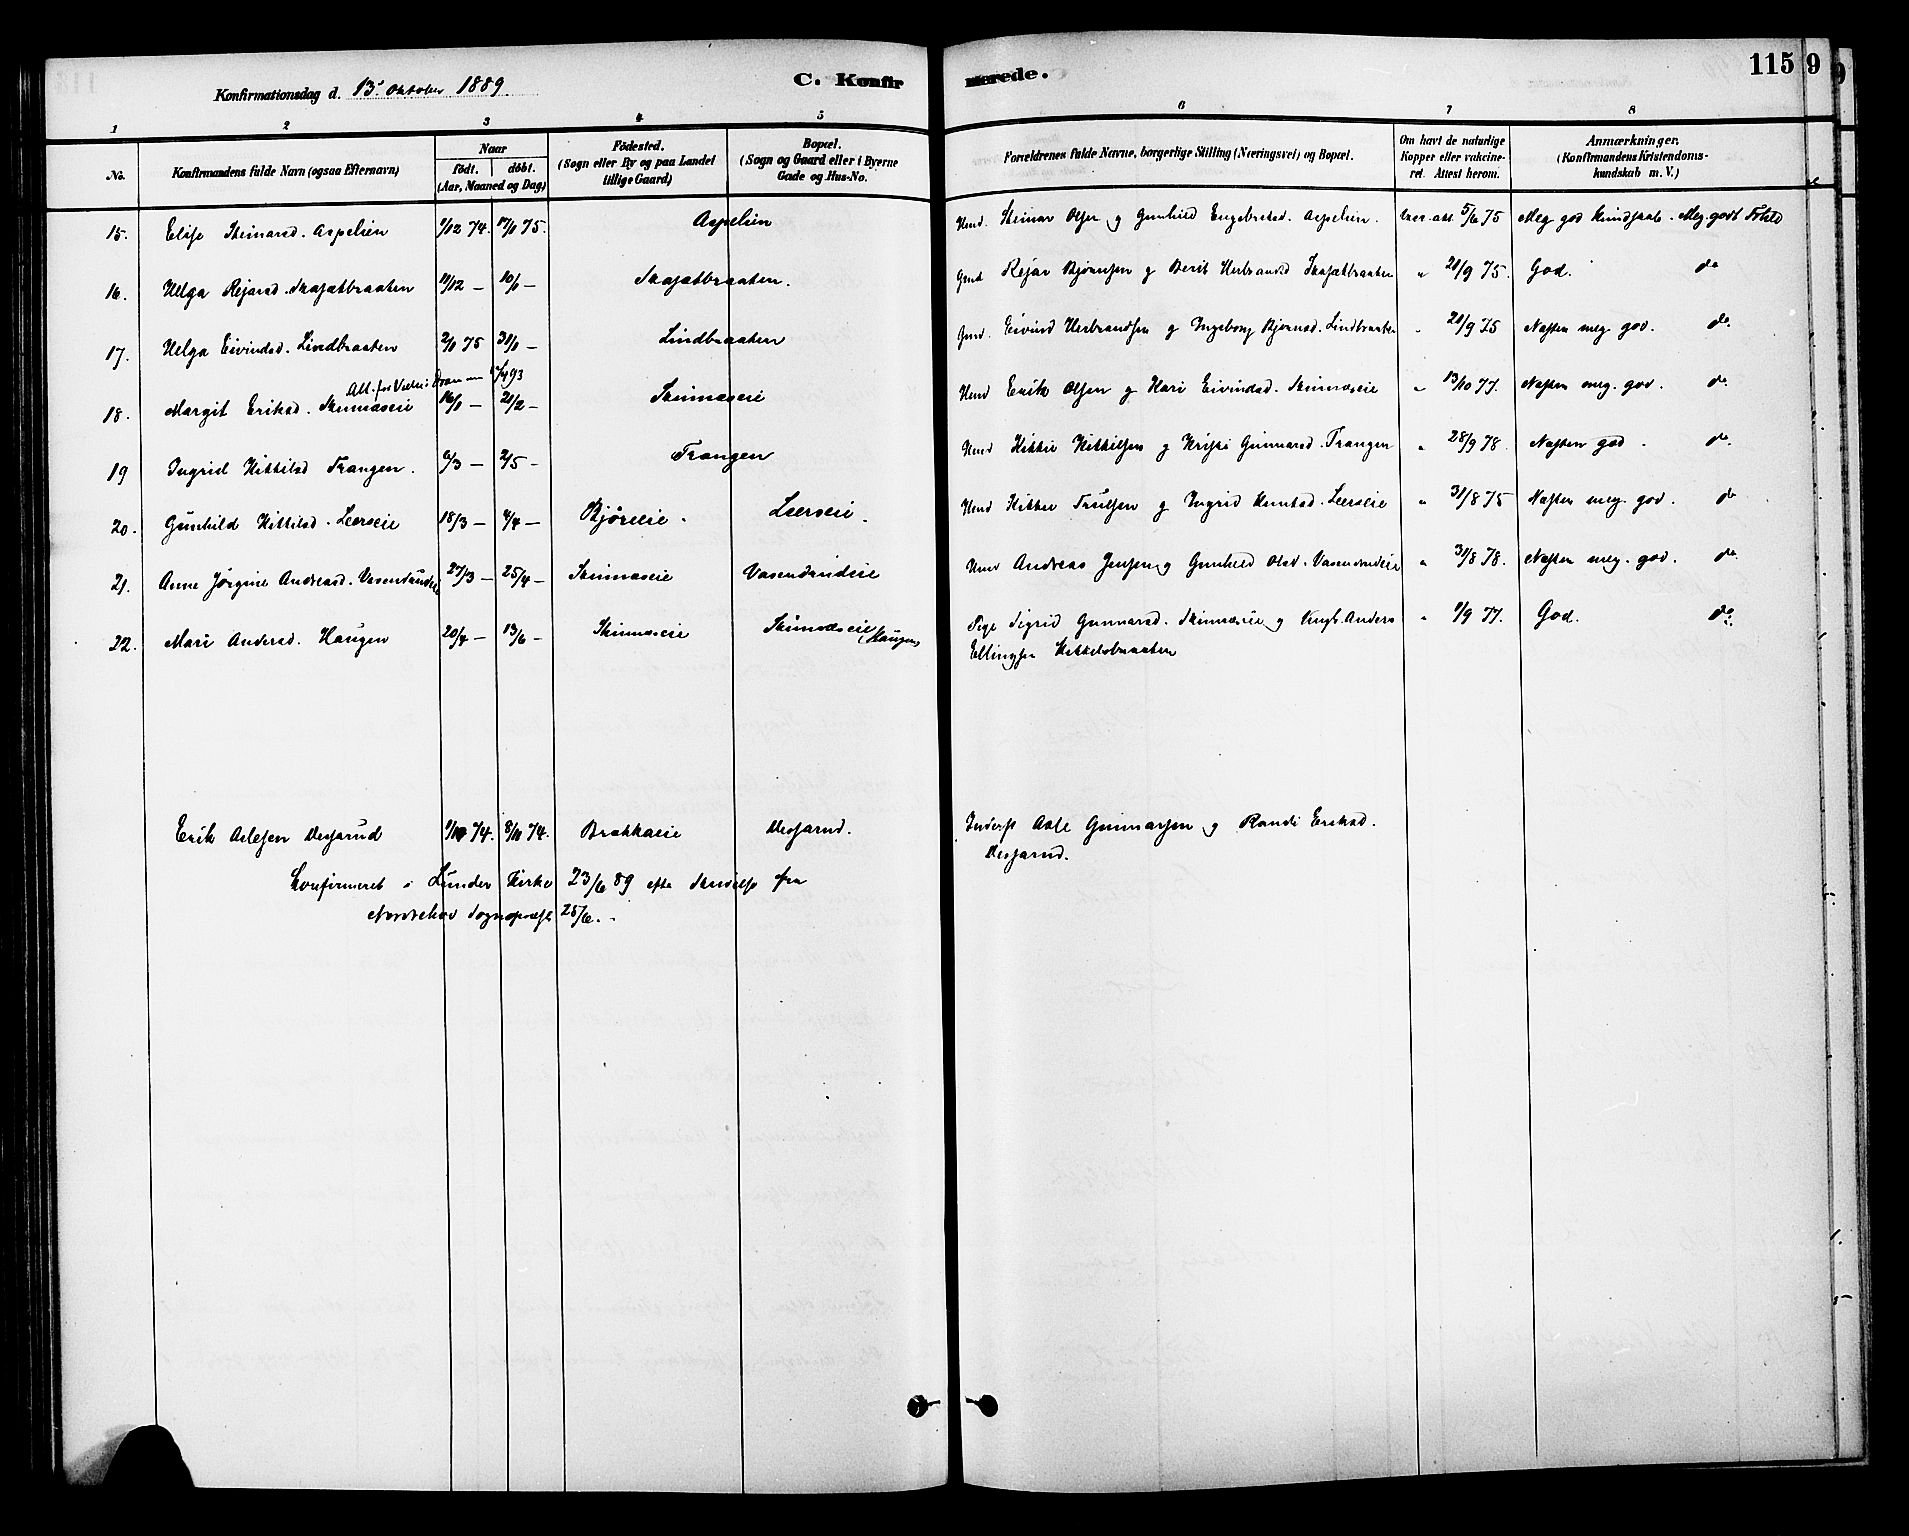 Konfirmationsdag d. 13. Oktober 1889. C. Konfirmerede. 115 9
1 2 3 4 5 6 7 8
No. Konfirmandens fulde Navn (ogsaa Efternavn) Naar födt. döbt. (Aar, Maaned og Dag) Födested. (Sogn eller By og paa Landet tillige Gaard) Bopæl. (Sogn og Gaard eller i Byerne Gade og Hus-No. Forældrenes fulde Navne, borgerlige Stilling (Næringsvei) og Bopæl. Om havt de naturlige Kopper eller vakcineret. Attest herom. Anmærkninger. (Konfirmandens Kristendomskundskab m. V.)
15. Elise Steinarsd. Aspelien 1/12 74. 17/1 75. Aspelien Steinar Olsen og Gunhild Engebretsd. Aspelien. 5/6 75 Meg god Kundskab. Meg. godt Forhold
16. Helga Rejarsd. Skafætbraaten 11/12 — 10/1 — Skafætbraaten. Gmd Rejar Bjørnsen og Berit Herbrandsd Skafætbraaten " 21/9 75. God. do
17. Helga Eivindsd. Lindbraaten 2/1 75 31/1 — Lindbraaten Gmd. Eivind Herbrandsen og Ingeborg Bjørnsd. Lindbraaten " 21/9 75 Næsten meg god. do.
18. Margit Eriksd. Skinnæseie 16/1 — 21/2 — Skinnæseie Hmd Erik Olsen og Kari Eivindsd. Skinnæseie " 13/10 77. Næsten meg. god. do.
19 Ingrid Kittilsd Trangen. 6/3 — 2/5 — Trangen Hmd Kittil Kittilsen og Kristi Gunnarsd. Trangen " 28/9 78. Næsten god. do.
20. Gunhild Kittilsd. Leerseie 18/3 — 4/4 — Bjøreeie. Leerseie. Hmd Kittil Trulsen og Ingrid Knutsd. Leerseie " 31/8 75 Næsten meg. god. do
21. Anne Jørgine Andreasd. Vasendrudeie 27/3 — 25/4 — Skinnæseie Vasendrudeie Hmd Andreas Jensen og Gunhild Olsd. Vasendrudeie " 31/8 78. Næsten meg. god. do
22. Mari Andersd. Haugen 20/4 — 13/6 — Skinnæseie Skinnæseie (Haugen) Pige Sigrid Gunnarsd. Skinnæseie og Ungk. Anders " 1/9 77. God. do.
Ellingsen Kittelsbraaten
Erik Aslesen Desjarud 1/10 74. 8/11 74. Brakkaeie Desjarud. Inderst Asle Gunnarsen og Randi Eriksd.
Desjarud.
Konfirmeret i Lunder Kirke 23/6 89 efter Skrivelse fra
Norderhov Sognepræst 25/6.